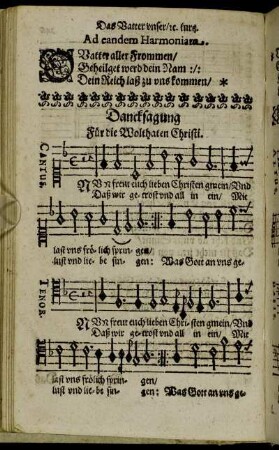 Das Vatter unser/ ꝛc. kurtz.
Ad eandem Harmoniam.
O Vatter aller Frommen/
Geheilget werd dein Nam :/:
Dein Reich laß zu uns kommen/ *
Dancksagung
Für die Wolthaten Christi.
CANTUS.
NUn frewt euch lieben Christen gmein/ Und
Daß wir ge-trost und all in ein/ Mit
last uns frö-lich sprin-gen/
lust und lie-be sin-gen: Was Gott an uns ge-
TENOR.
NUn frewt euch lieben Chri-sten gmein/ Und
Daß wir ge-trost und all in ein/ Mit
last uns frölich sprin-gen/
lust und lie-be sin-gen: Was Gott an uns ge-